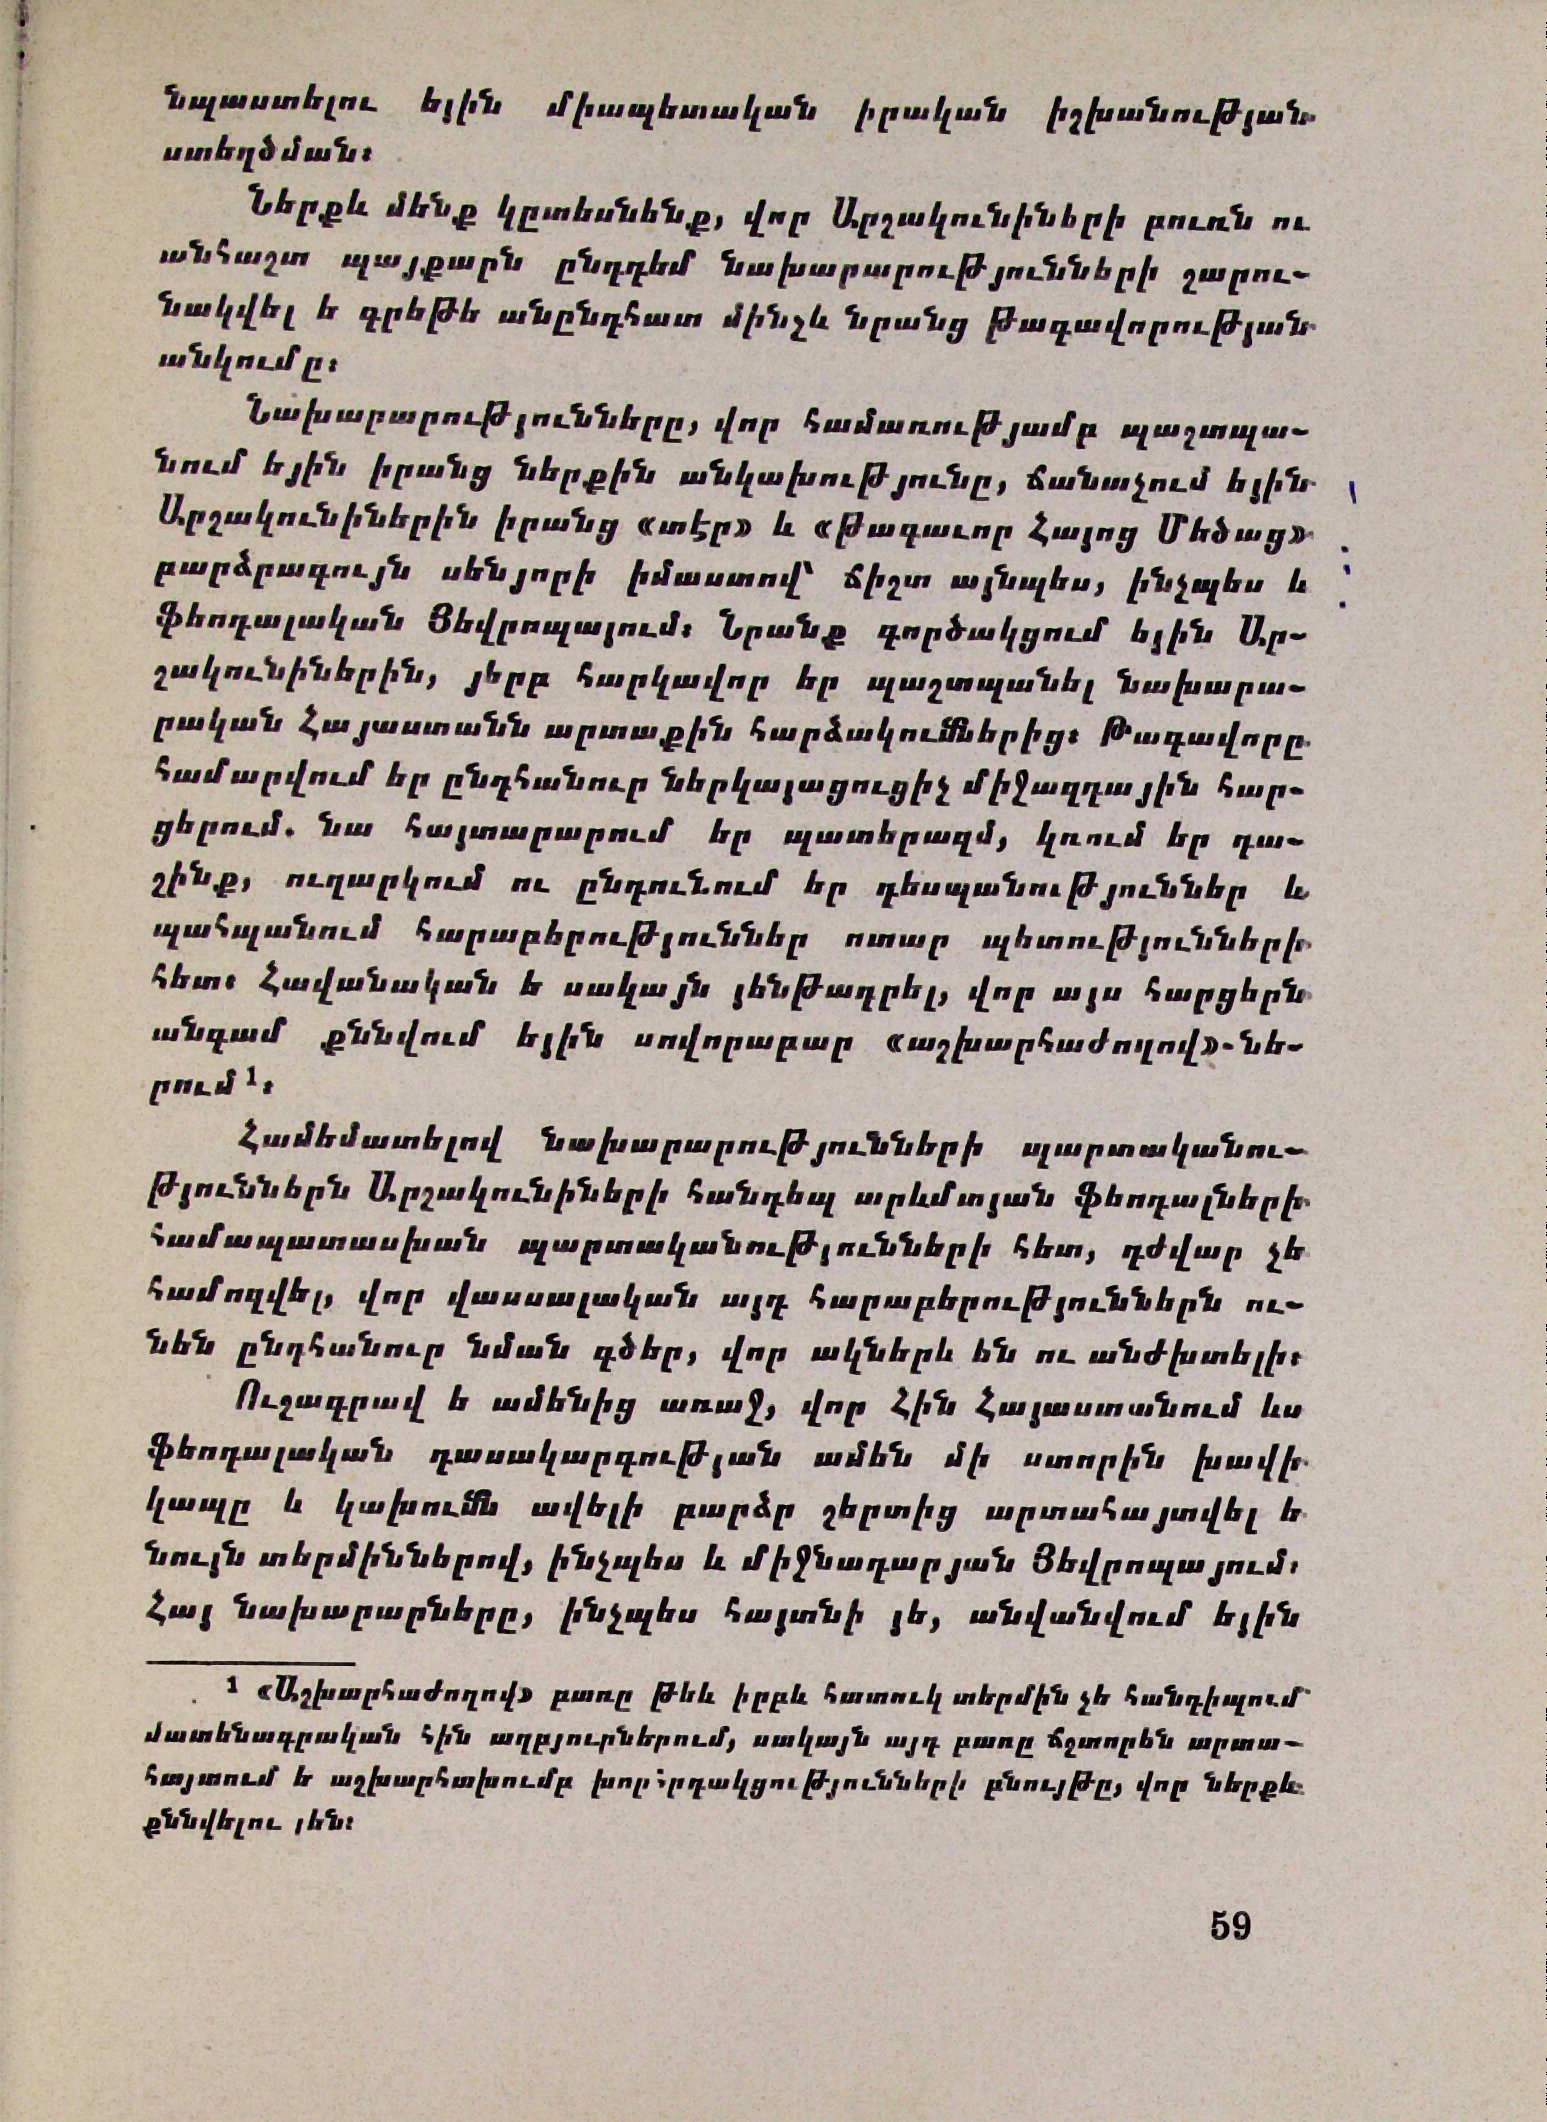 նպաստելու եյին միապետական իրական իշխանության
ստեղծման։
Ներքև մենք կըտեսնենք, վոր Արշակունիների բուռն ու
անհաշտ պայքարն ընդդեմ նախարարությունների շարու-
նակվել ե գրեթե անընդհատ մինչև նրանց թագավորության
անկումը։
Նախարարությունները, վոր համառությամբ պաշտպա-
նում եյին իրանց ներքին անկախությունը, ճանաչում եյին
Արշակունիներին իրանց «տէր» և «թագաւոր Հայոց Մեծաց»
բարձրագույն սենյորի իմաստով՝ ճիշտ այնպես, ինչպես և
ֆեոդալական Յեվրոպայում։ Նրանք գործակցում եյին Ար-
շակունիներին, յերբ հարկավոր եր պաշտպանել նախարա-
րական Հայաստանն արտաքին հարձակումներից։ Թագավորը
համարվում եր ընդհանուր ներկայացուցիչ միջազդային հար-
ցերում. նա հայտարարում եր պատերազմ, կռում եր դա-
շինք, ուղարկում ու ընդունում եր դեսպանություններ և
պահպանում հարաբերություններ ոտար պետությունների
հետ։ Հավանական ե սակայն յենթադրել, վոր այս հարցերն
անգամ քննվում եյին սովորաբար «աշխարհաժողով»-նե-
րում¹։
Համեմատելով նախարարությունների պարտականու-
թյուններն Արշակունիների հանդեպ արևմտյան ֆեոդալների
համապատասխան պարտականությունների հետ, դժվար չե
համոզվել, վոր վասսալական այդ հարաբերություններն ու-
նեն ընդհանուր նման գծեր, վոր ակներև են ու անժխտելի։
Ուշագրավ ե ամենից առաջ, վոր Հին Հայաստանում ևս
ֆեոդալական դասակարգության ամեն մի ստորին խավի
կապը և կախումն ավելի բարձր շերտից արտահայտվել ե
նույն տերմիններով, ինչպես և միջնադարյան Յեվրոպայում։
Հայ նախարարները, ինչպես հայտնի յե, անվանվում եյին
¹ «Աշխարհաժողով» բառը թեև իրբև հատուկ տերմին չե հանդիպում
մատենագրական հին աղբյուրներում, սակայն այդ բառը ճշտորեն արտա-
հայտում ե աշխարհախումբ խորհրդակցությունների բնույթը, վոր ներքև
քննվելու յեն։
59